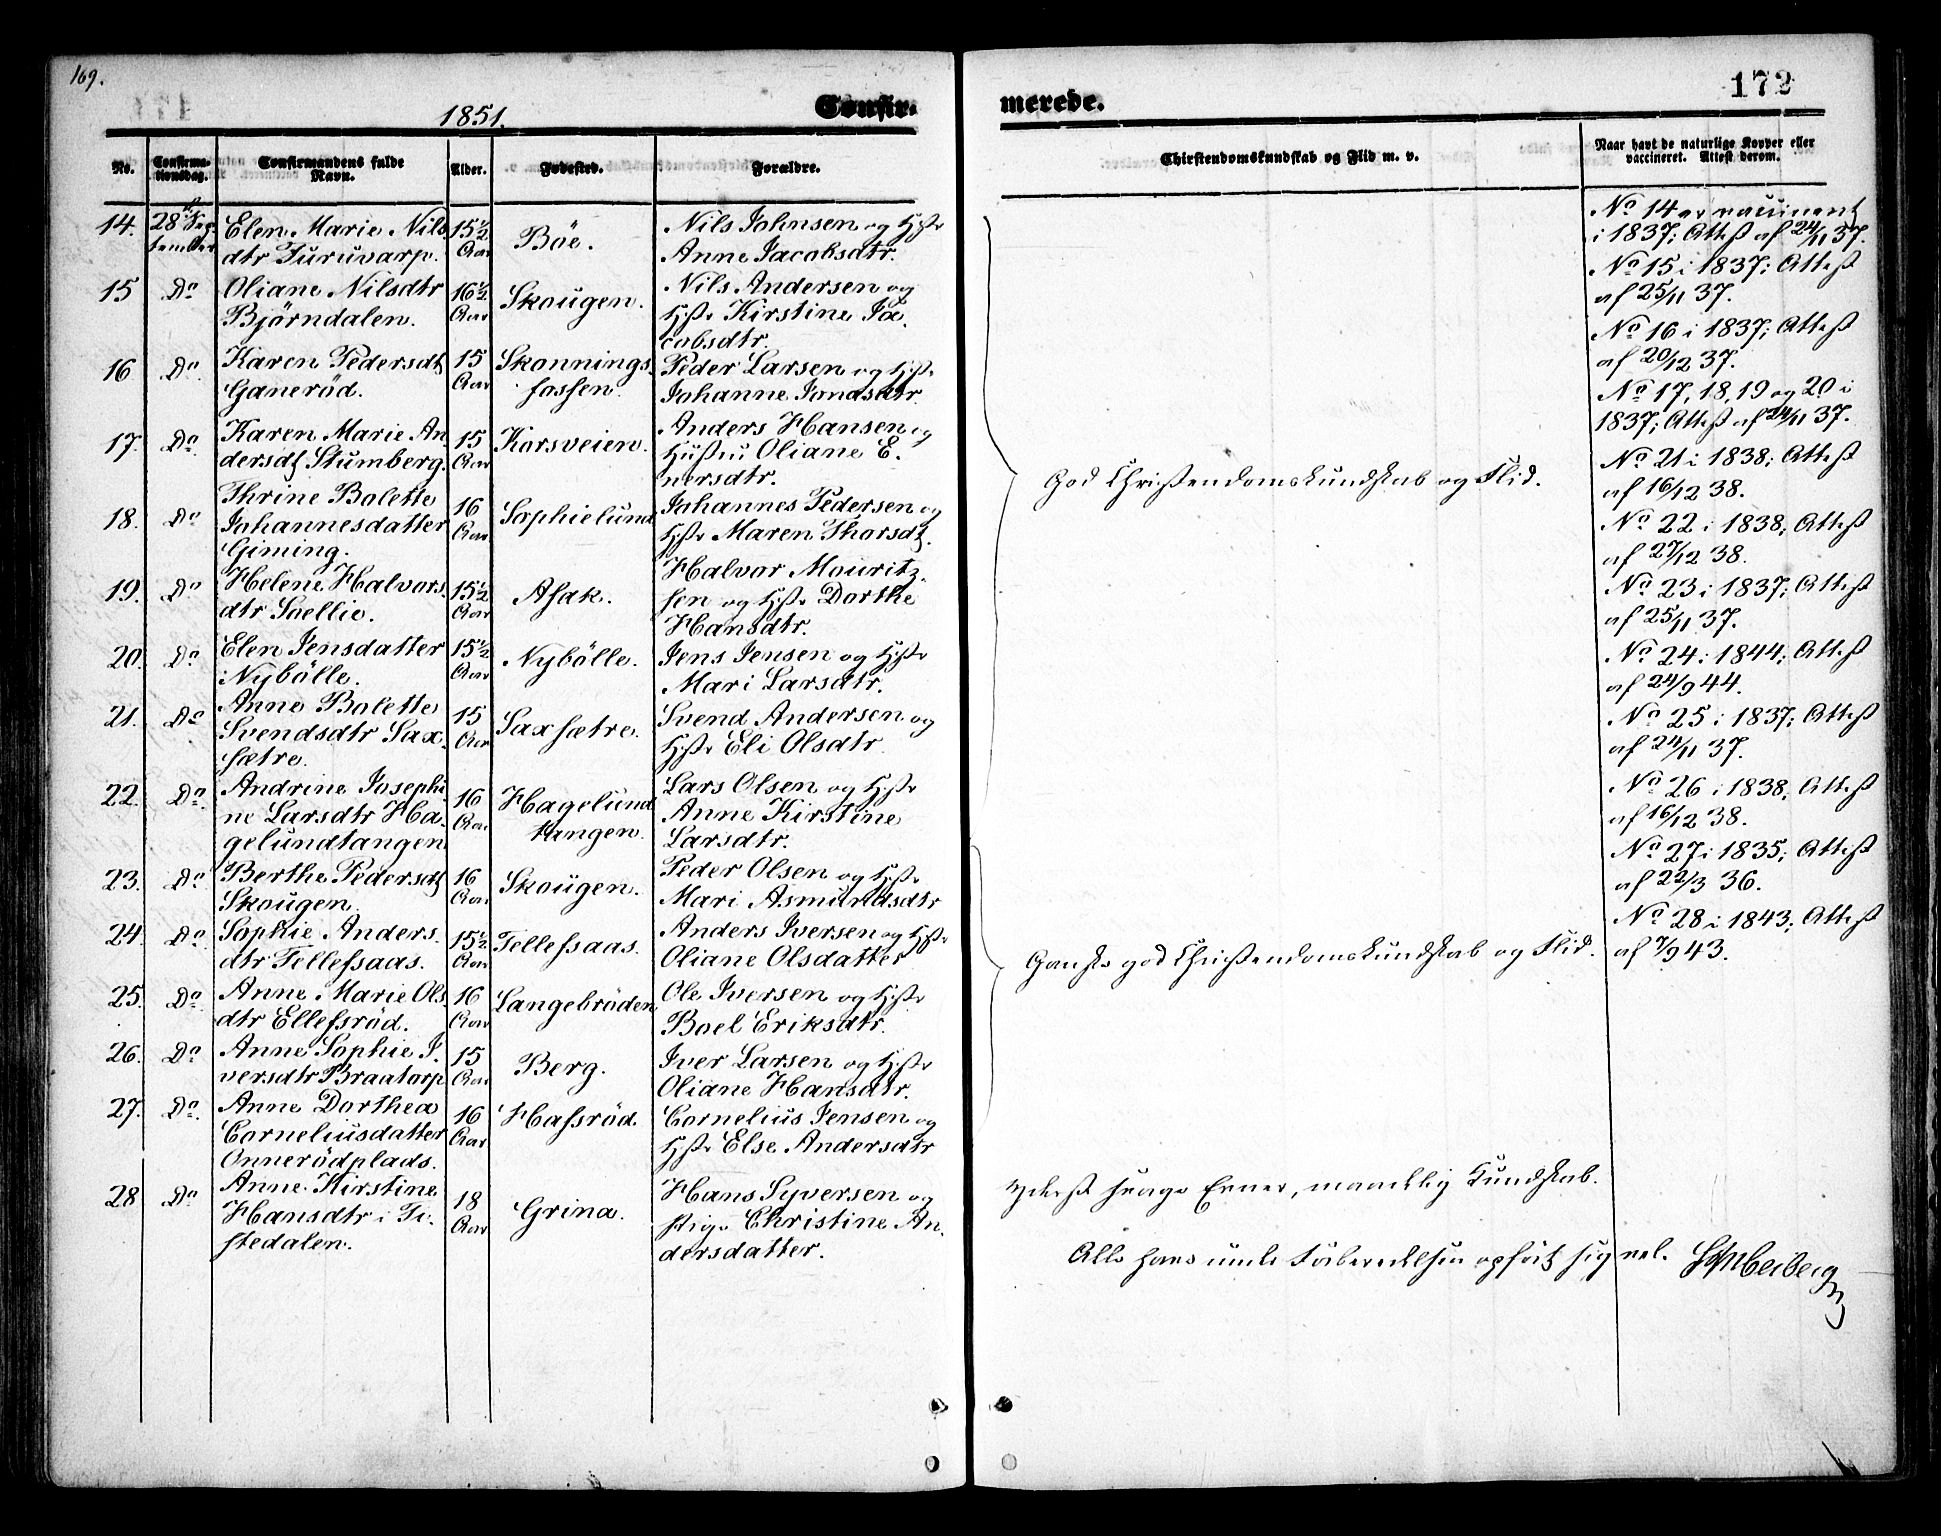 169.
172
1851.
Confir-
merede.
No.
Confirma-
tionsdag.
Confirmandens fulde
Navn.
Alder.
Fødested.
Forældre.
Chirstendomskundskab og Flid m. v.
Naar havt de naturlige Kopper eller
vaccineret. Attest derom.
14. 28de Sep- Elen Marie Nils 15 1/2 Böe. Nils Johnsen og Hstr
tember dtr Furuvarp. Aar Anne Jacobsdtr.
15 Do Oliane Nilsdtr 16 1/2 Skougen. Nils Andersen og
Björndalen. Aar Hstr Kirstine Ja-
cobsdtr.
16 Do Karen Pedersdt 15 Skonnings- Peder Larsen og Hstr
Ganeröd. Aar fossen. Johanne Jonasdtr
17. Do Karen Marie An 15 Korsveien. Anders Hansen og
dersdt Stumberg. Aar Hustru Oliane E-
nersdtr.
18. Do Thrine Bolette 16 Sophielund Johannes Pedersen og
Johannesdatter Aar Hstr Maren Thorsdt.
Giming.
19. Do Helene Halvors- 15 1/2 Asak. Halvor Mouritz-
dtr Saellie. Aar sen og Hstr Dorthe
Hansdtr.
20. Do Elen Jensdatter 15 1/2 Nybölle. Jens Jensen og Hstr
Nybölle. Aar Mari Larsdtr.
21. Do Anne Bolette 15 Saxsætre. Svend Andersen og
Svendsdtr Sax- Aar Hstr Eli Olsdtr
sætre.
22. Do Andrine Josephi 16 Hagelund Lars Olsen og Hstr
ne Larsdtr Ha- Aar tangen. Anne Kirstine
gelundtangen Larsdtr.
23. Do Berthe Pedersdt 16 Skougen. Peder Olsen og Hstr
Skougen. Aar Mari Asmundsdtr
24. Do Sophie Anders- 15 1/2 Tellefsaas. Anders Iversen og Hstr
dtr Tellefsaas. Aar Oliane Olsdatter
25. Do Anne Marie Ols- 16 Langebröden Ole Iversen og Hstr
dtr Ellefsröd. Aar Boel Eriksdtr.
26. Do Anne Sophie I- 15 Berg. Iver Larsen og Hstr
versdtr Braatorp Aar Oliane Hansdtr.
27. Do Anne Dorthea 16 Hafsröd. Cornelius Jensen og
Corneliusdatter Aar Hstr Else Andersdtr
Onnerödplads.
28 Do Anne Kirstine 18 Grina. Hans Syversen og
Hansdtr i Ti- Aar Pige Christine An-
stedalen. dersdatter.
God Christendomskundskab og Flid.
Ganske god Christendomskundskab og Flid.
Yderst svage Evner, maadelig Kundskab.
Alle have under Forberedelsen opført sig vel.
No 14 er vaccineret
i 1837; Attest af 24/11 37.
No 15 i 1837; Attest
af 25/11 37.
No 16 i 1837; Attest
af 20/12 37.
No 17, 18, 19 og 20 i
1837; Attest af 24/11 37.
No 21 i 1838; Attest
af 16/12 38.
No 22 i 1838; Attest
af 27/12 38.
No 23 i 1837; Attest
af 25/11 37.
No 24 i 1844; Attest
af 24/9 44.
No 25 i 1837; Attest
af 24/11 37.
No 26 i 1838; Attest
af 16/12 38.
No 27 i 1835; Attest
af 22/3 36.
No 28 i 1843; Attest
af 7/9 43.